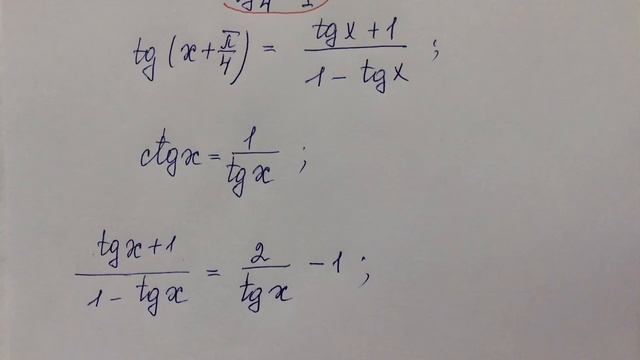 tg(x + π/4) = (tgx + 1)/(1 - tgx) ;
ctgx = 1/tgx ;
(tgx + 1)/(1 - tgx) = 2/tgx - 1 ;